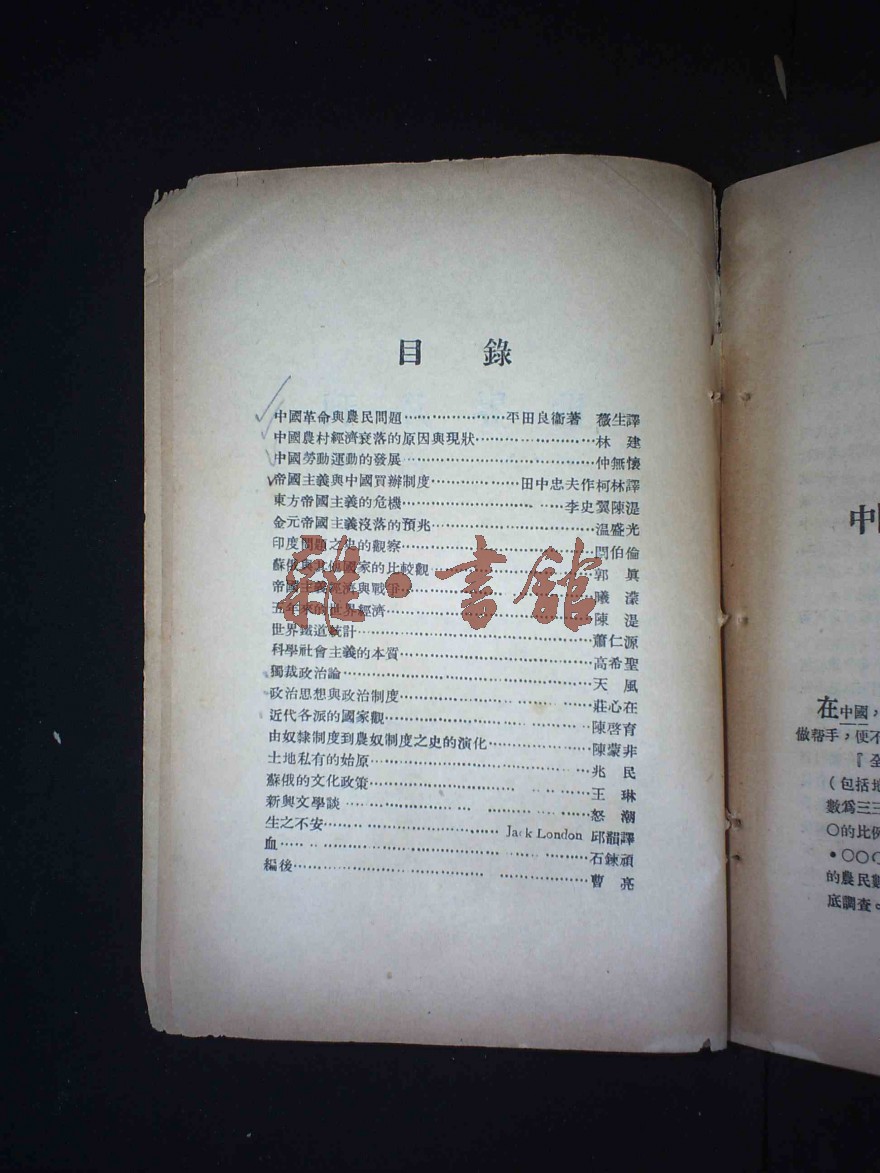 目錄
中國革命與農民問題 平田良衞著 薇生譯
中國農村經濟衰落的原因與現狀 林建
中國勞動運動的發展 仲無懷
帝國主義與中國買辦制度 田中忠夫作柯林譯
東方帝國主義的危機 李史翼陳湜
金元帝國主義沒落的預兆 温盛光
印度問題之史的觀察 閆伯倫
蘇俄與其他國家的比較觀 郭真
帝國主義經濟與戰爭 曦濛
五年來的世界經濟 陳湜
世界鐵道統計 蕭仁源
科學社會主義的本質 高希聖
獨裁政治論 天風
政治思想與政治制度 莊心在
近代各派的國家觀 陳啓育
由奴隸制度到農奴制度之史的演化 陳蒙非
土地私有的始原 兆民
蘇俄的文化政策 王琳
新興文學談 怒潮
生之不安 Jack London 邱韻譯
血 石鍊頑
編後 曹亮
雜·書館
中
在中國，
做帮手，便不
『全
（包括地
數爲三三
〇的比例
•〇〇〇
的農民數
底調查。